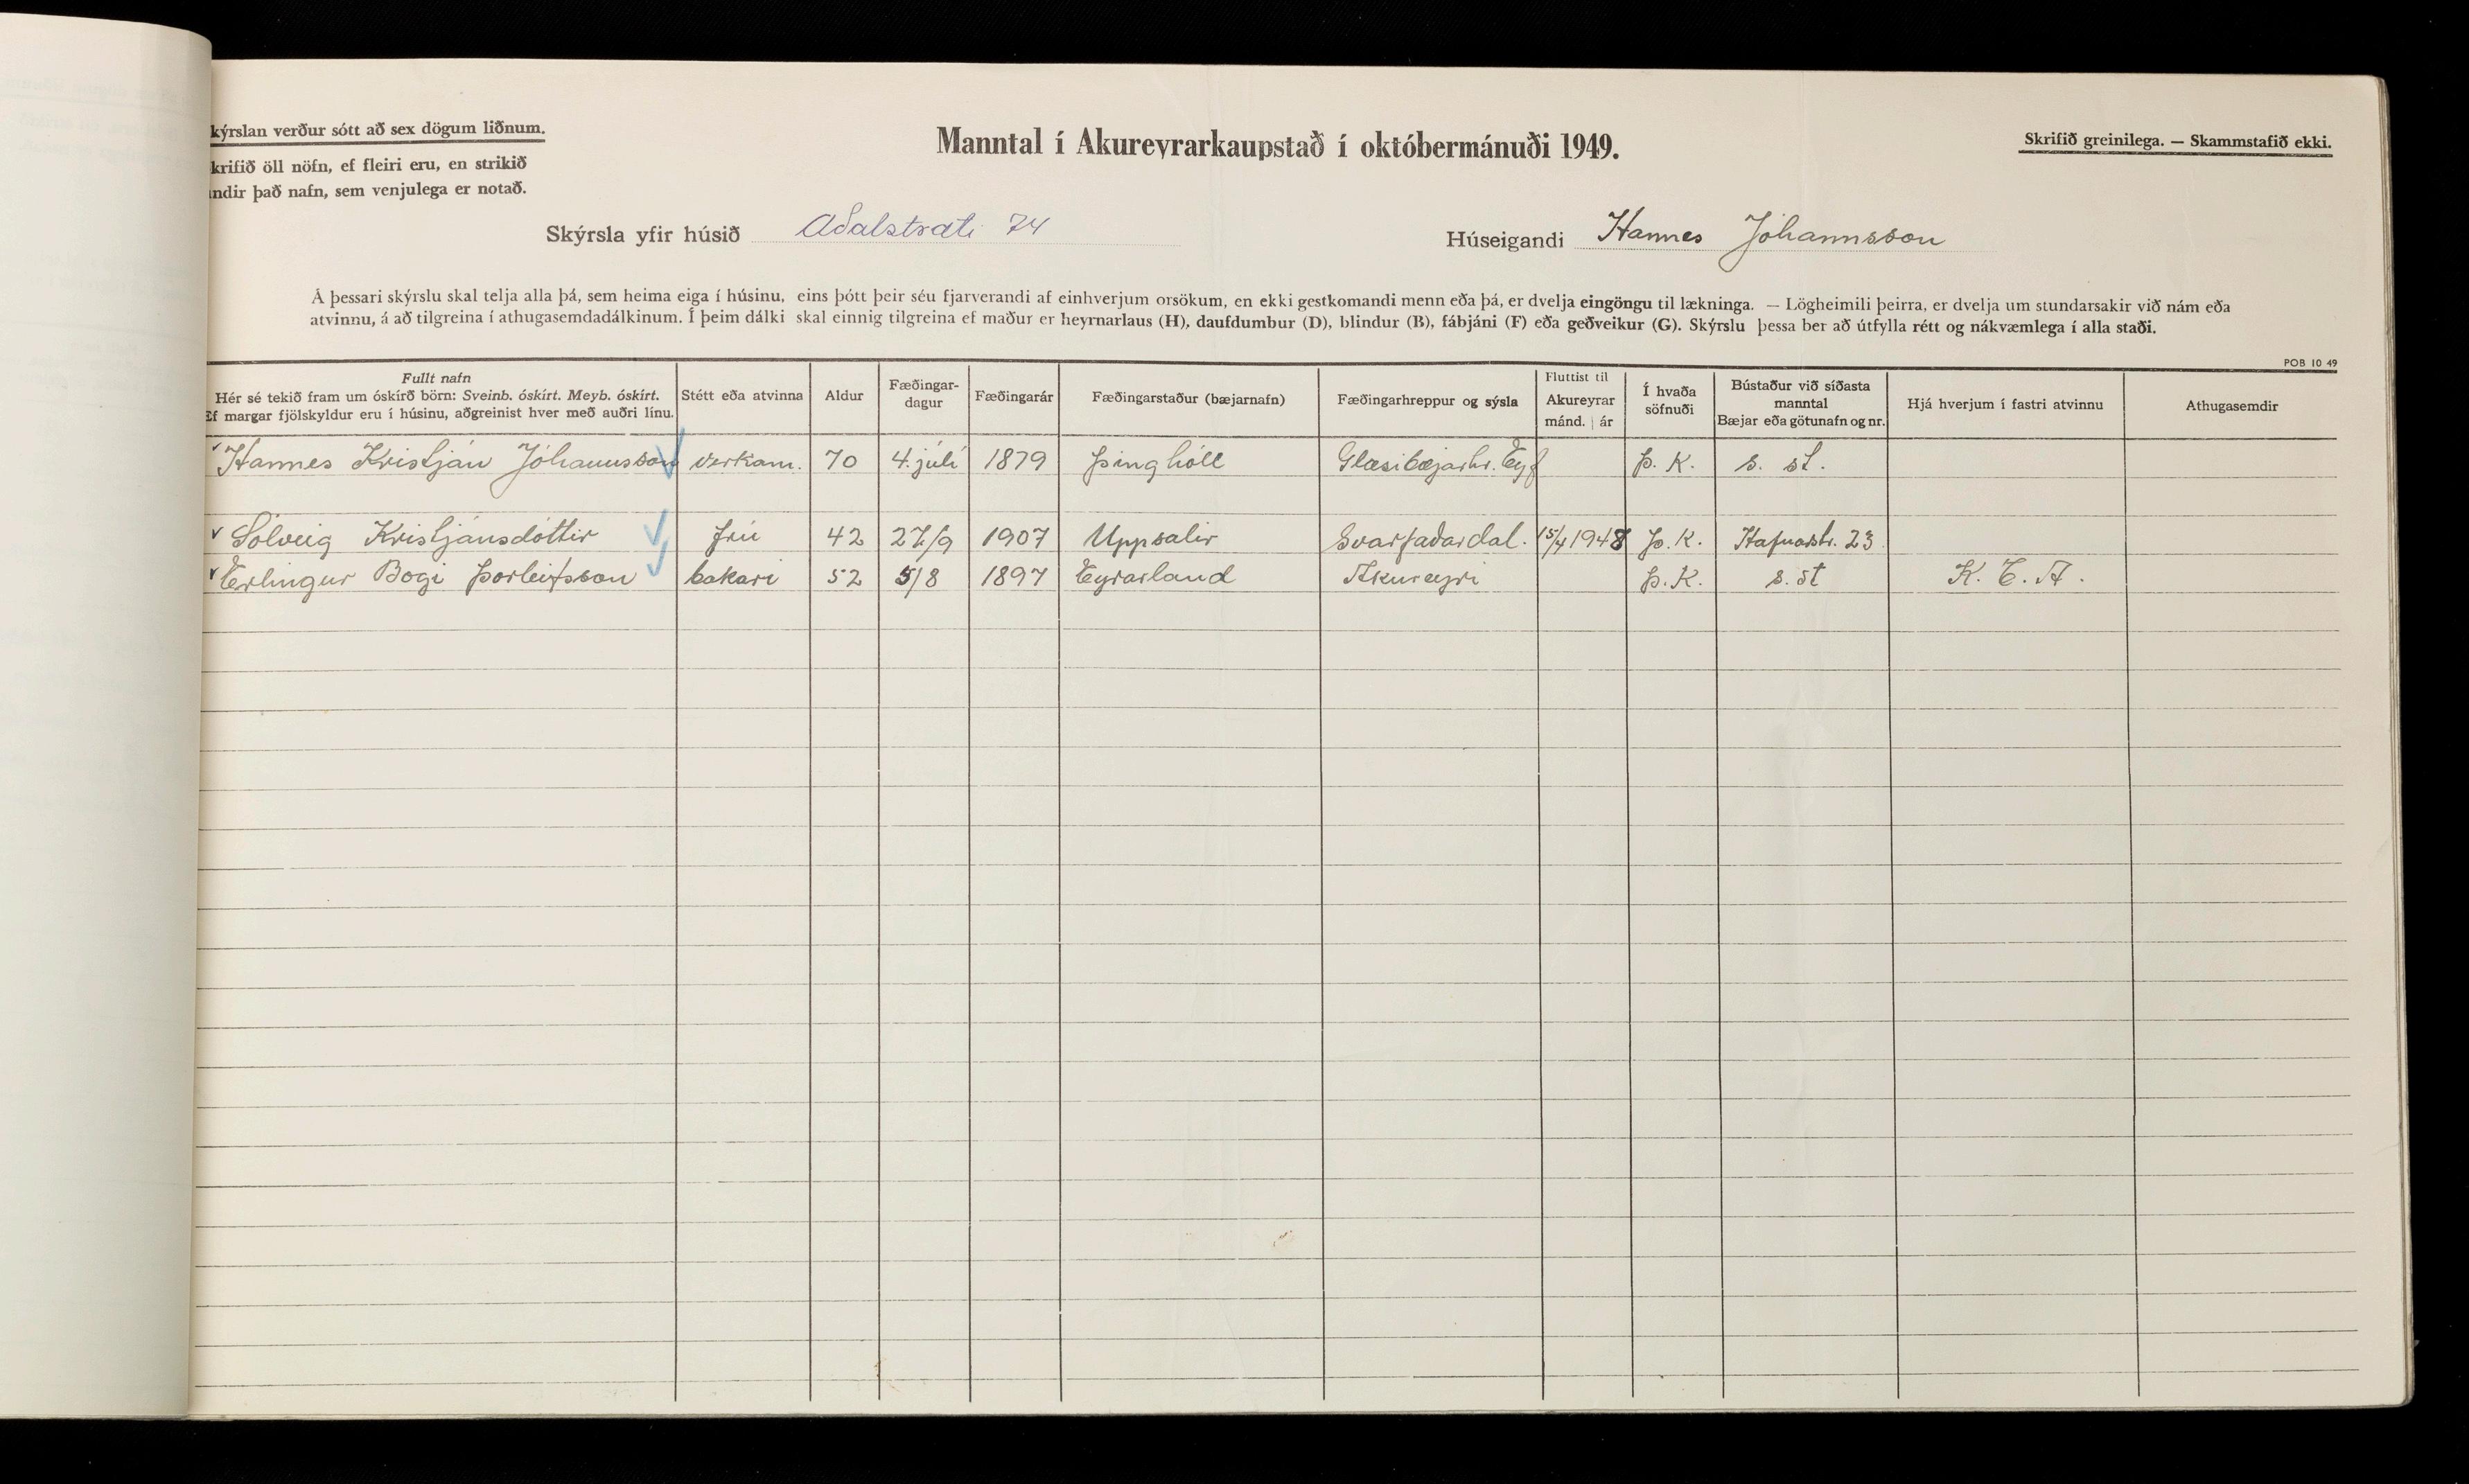 kýrslan verður sótt að sex dögum liðnum.
krifið öll nöfn, ef fleiri eru, en strikið
ndir það nafn, sem venjulega er notað.
Manntal í Akureyrarkaupstað í októbermánuði 1949.
Skrifið greinilega. — Skammstafið ekki.
Skýrsla yfir húsið Aðalstræti 74
Húseigandi Hannes Jóhannsson
Á þessari skýrslu skal telja alla þá, sem heima eiga í húsinu, eins þótt þeir séu fjarverandi af einhverjum orsökum, en ekki gestkomandi menn eða þá, er dvelja eingöngu til lækninga. — Lögheimili þeirra, er dvelja um stundarsakir við nám eða
atvinnu, á að tilgreina í athugasemdadálkinum. Í þeim dálki skal einnig tilgreina ef maður er heyrnarlaus (H), daufdumbur (D), blindur (B), fábjáni (F) eða geðveikur (G). Skýrslu þessa ber að útfylla rétt og nákvæmlega í alla staði.
POB 10 49
Fullt nafn
Hér sé tekið fram um óskírð börn: Sveinb. óskírt. Meyb. óskírt.
Ef margar fjölskyldur eru í húsinu, aðgreinist hver með auðri línu.
Stétt eða atvinna
Aldur
Fæðingar-
dagur
Fæðingarár
Fæðingarstaður (bæjarnafn)
Fæðingarhreppur og sýsla
Fluttist til
Akureyrar
mánd. | ár
Í hvaða
söfnuði
Bústaður við síðasta
manntal
Bæjar eða götunafn og nr.
Hjá hverjum í fastri atvinnu
Athugasemdir
Hannes Kristján Jóhannsson verkam. 70 4. júlí 1879 Þinghóll Glæsibæjarhr. Eyf Þ. K. s. st.
Sólveig Kristjánsdóttir frú 42 27/9 1907 Uppsalir Svarfaðardal. 15/4 1948 Þ. K. Hafnarstr. 23
Erlingur Bogi Þorleifsson bakari 52 5/8 1897 Eyrarland Akureyri Þ. K. s. st K. E. A.